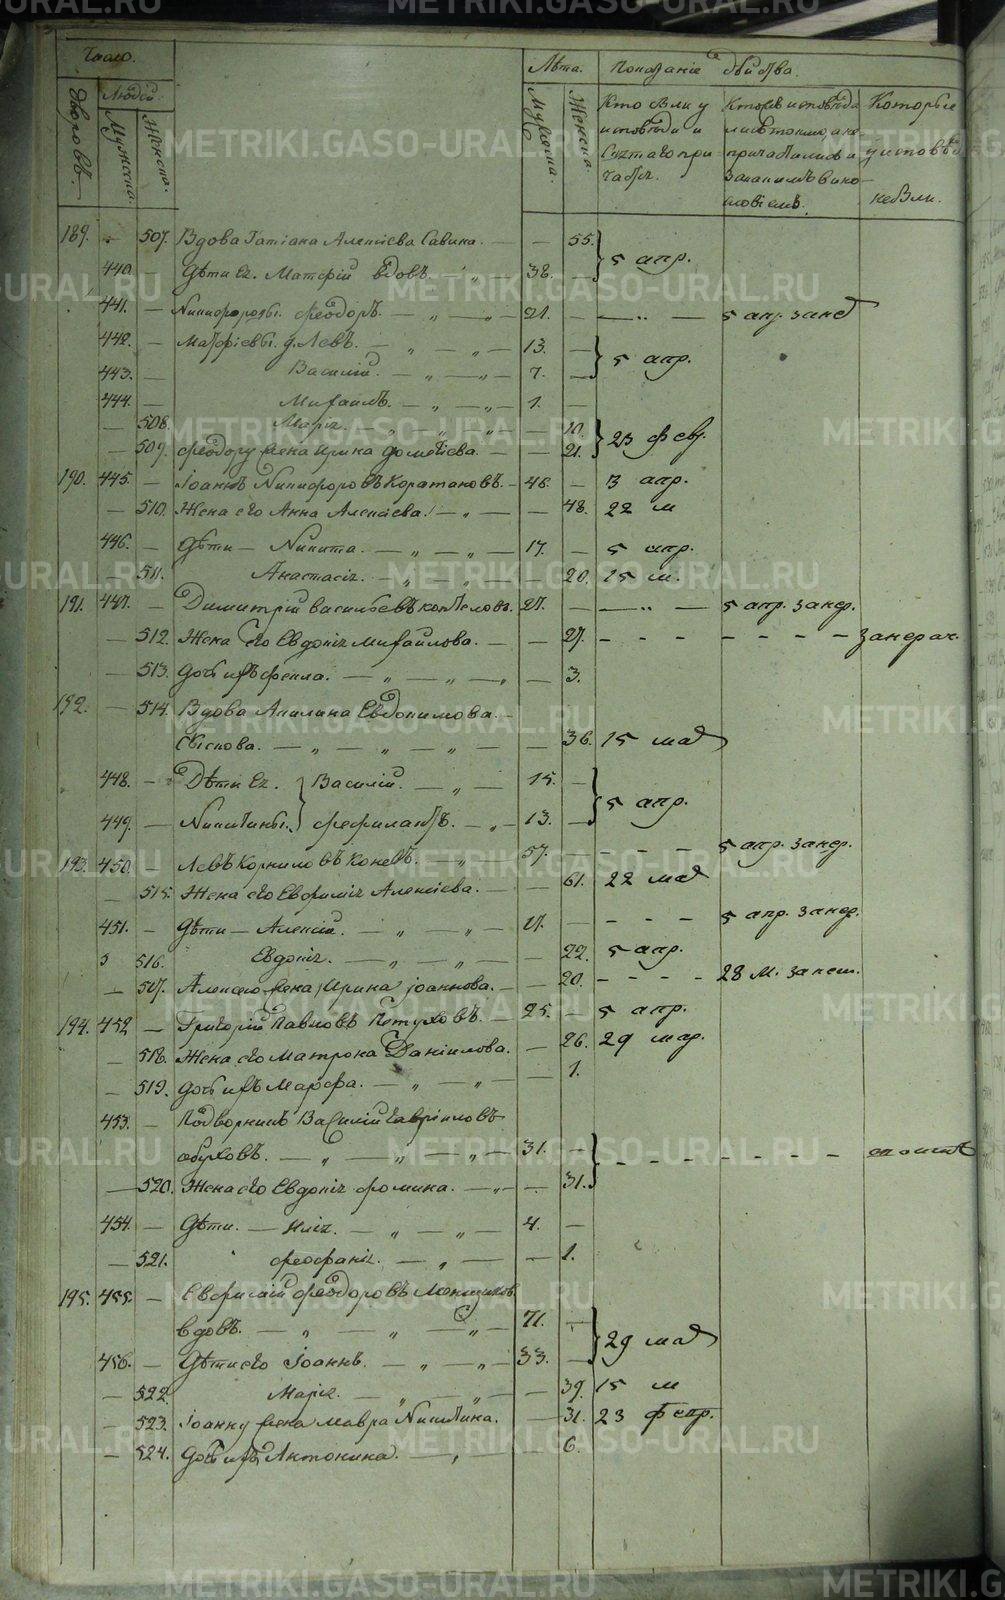 Число.
Лѣта. Показаніе дѣйства.
Дворовъ. Людей. Мужеска. Женска.
Мужеска. Женска.
Кто были у исповѣди и Св. таго при-
Которые
не были.
189. — 507. Вдова Татіана Алексѣева Савина. — — 55. 5 апр.
440. — Дѣти ея. Матфій вдовъ. — „ — 38.
441. — Никифоровы. Феодоръ. — „ — „ — 21. — — „ — 5 апр. занед
442. — Матфіевы. д. Левъ. — „ — „ — 13. — 5 апр.
443. — Василій. — „ — „ — 7. —
444. — Михаилъ. — „ — „ — 1. —
— 508. Марія. — „ — „ — „ — 10. 23 февр.
— 509. Феодору жена Ирина Дометіева. — — 21.
190. 445. — Іоаннъ Никифоровъ Каратановъ. — 48. — 13 апр.
— 510. Жена его Анна Алексіева. — „ — — 48. 22 м
446. — Дѣти — Никита. — „ — „ — 17. — 5 апр.
— 511. Анастасія. — „ — „ — — 20. 15 м.
191. 447. — Димитрій Васильевъ Котѣловъ. 27. — — „ — 5 апр. занер.
— 512. Жена его Евдокія Михайлова. — — 27. - - - - - - - занерач.
— 513. Дочь ихъ Фекла. — „ — „ — „ — 3.
192. — 514. Вдова Акилина Евдокимова.
— „ — „ — „ — — 36. 15 мар
448. — Дѣти ея. Василій. — „ — 15. — 5 апр.
449. — Никитины. Феофилактъ. — „ — 13. —
193. 450. — Левъ Корниловъ Коневъ. — „ — 57. - - - 5 апр. занер.
— 515. Жена его Евфимія Алексіева. — — 61. 22 мар
451. — Дѣти — Алексій. — „ — „ — 21. — - - - 5 апр. занер.
516. Евдокія. — „ — „ — — 22. 5 апр.
— 517. Алексею жена Ирина Іоаннова. — — 20. - - - 28 м.
194. 452 — Григорій Павловъ Петуховъ. — 25. — 5 апр.
— 518. Жена его Матрона Даніилова. — 26. 29 мар.
— 519. Дочь ихъ Марфа. — „ — „ — — 1.
453. — Подворникъ Василій Гавріиловъ
Обуховъ. — „ — „ — „ — 31. — - - - - - -
— 520. Жена его Евдокія Фомина. — „ — — 31.
454. — Дѣти. — Илія. — „ — „ — 4. —
— 521. Феофанія. — „ — — 1.
195. 455. — Евфисій Феодоровъ Меньшиков
вдовъ. — „ — „ — „ — 71. — 29 мар
456. — Дѣти его Іоаннъ. — „ — „ — 33. —
— 522 Марія. — „ — „ — — 39. 15 м
— 523. Іоанну жена Мавра Никитина. — 31. 23 февр.
— 524. Дочь ихъ Антонина. — „ — — 6.
METRIKI.GASO-URAL.RU